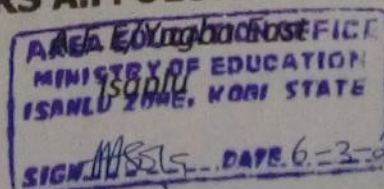 AREA EDUCATION OFFICE
A.E.O Yagba East
MINISTRY OF EDUCATION
Isanlu
ISANLU ZONE, KOGI STATE
SIGN DATE 6-3-